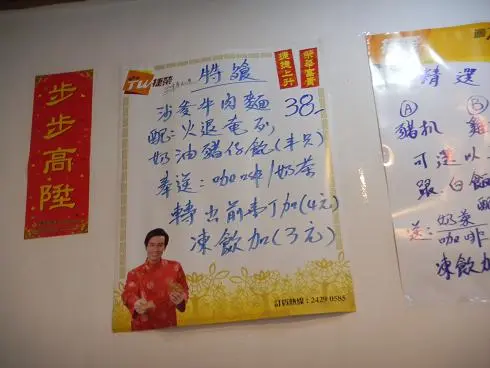 步步高陞
TW捷榮
捷捷上升
榮華富貴
特餐
沙爹牛肉麵 38-
配:火退奄列
奶油豬仔飽(半只)
奉送:咖啡/奶茶
轉出前壽丁加(4元)
凍飲加(3元)
訂貨熱線:2429 0585
精選
A B
豬扒 雞
可選以
跟白飯
送:奶茶
咖啡
凍飲加